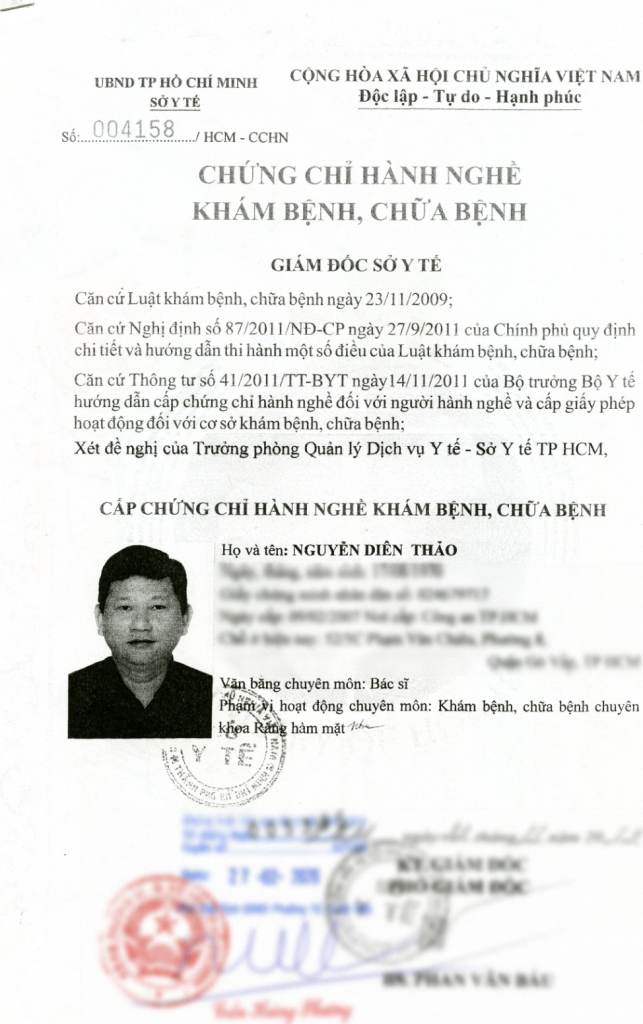 UBND TP HỒ CHÍ MINH
SỞ Y TẾ
CỘNG HÒA XÃ HỘI CHỦ NGHĨA VIỆT NAM
Độc lập - Tự do - Hạnh phúc
Số: 004158 / HCM - CCHN
CHỨNG CHỈ HÀNH NGHỀ
KHÁM BỆNH, CHỮA BỆNH
GIÁM ĐỐC SỞ Y TẾ
Căn cứ Luật khám bệnh, chữa bệnh ngày 23/11/2009;
Căn cứ Nghị định số 87/2011/NĐ-CP ngày 27/9/2011 của Chính phủ quy định
chi tiết và hướng dẫn thi hành một số điều của Luật khám bệnh, chữa bệnh;
Căn cứ Thông tư số 41/2011/TT-BYT ngày14/11/2011 của Bộ trưởng Bộ Y tế
hướng dẫn cấp chứng chỉ hành nghề đối với người hành nghề và cấp giấy phép
hoạt động đối với cơ sở khám bệnh, chữa bệnh;
Xét đề nghị của Trưởng phòng Quản lý Dịch vụ Y tế - Sở Y tế TP HCM,
CẤP CHỨNG CHỈ HÀNH NGHỀ KHÁM BỆNH, CHỮA BỆNH
Họ và tên: NGUYỄN DIÊN THẢO
Văn bằng chuyên môn: Bác sĩ
Phạm vi hoạt động chuyên môn: Khám bệnh, chữa bệnh chuyên
khoa Răng hàm mặt
Y TẾ
KT. GIÁM ĐỐC
PHÓ GIÁM ĐỐC